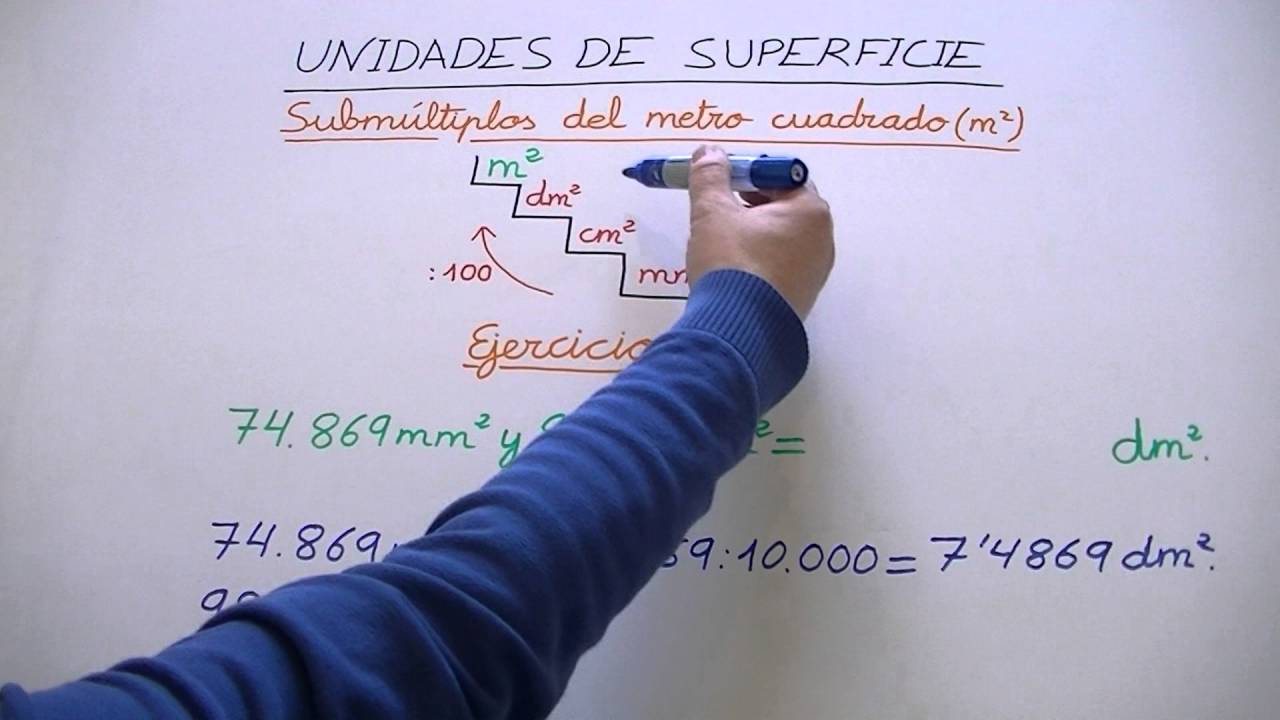 UNIDADES DE SUPERFICIE
Submúltiplos del metro cuadrado (m²)
m²
dm²
cm²
:100
74.869 mm² y = dm².
74.869 :10.000 = 7'4869 dm².